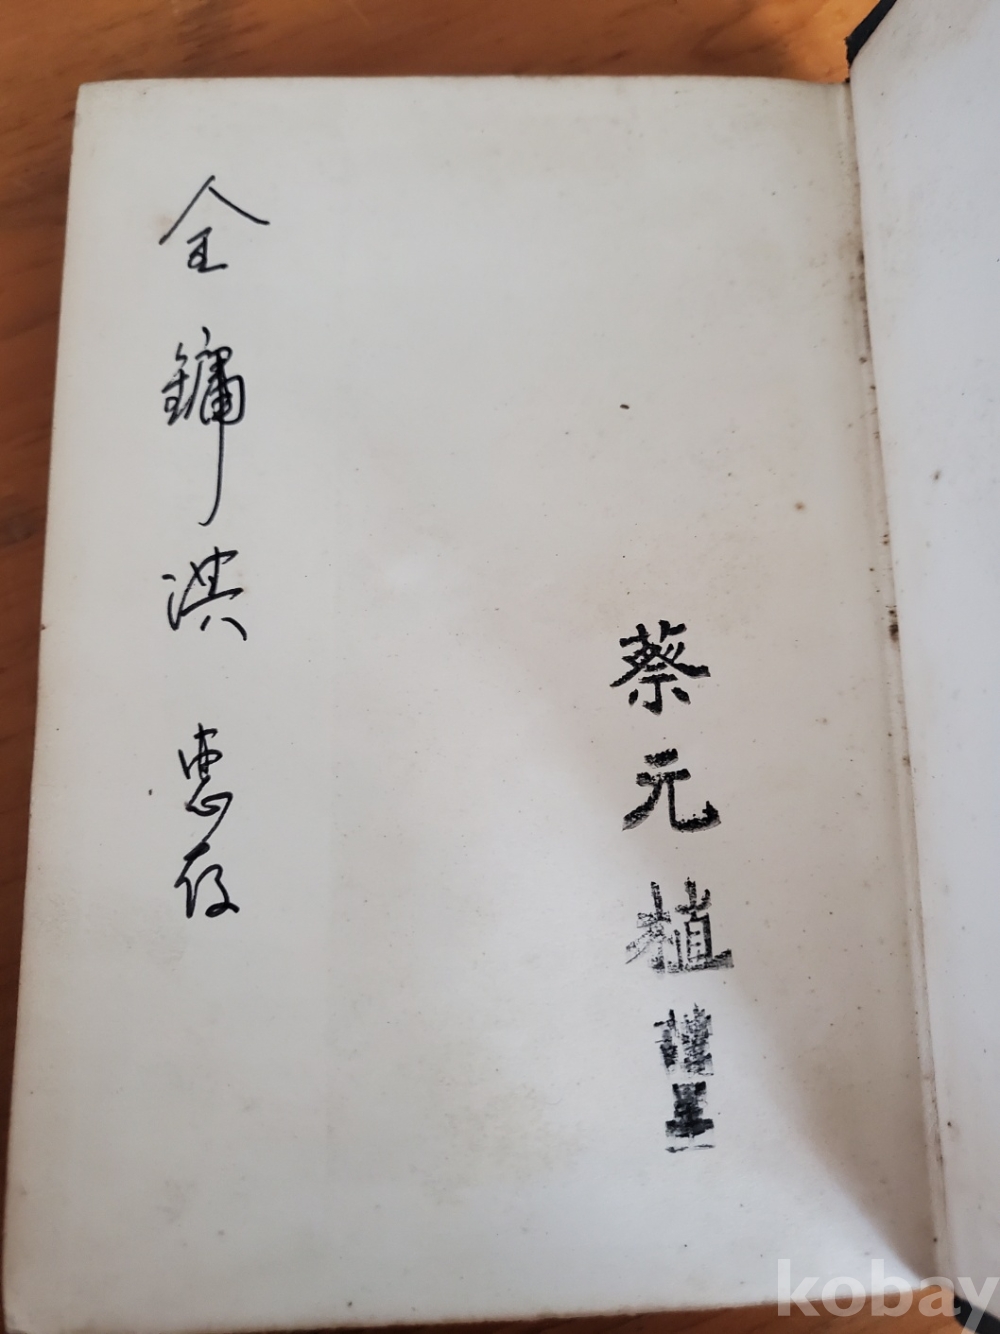 全鏞淇 惠存
蔡元植 謹呈
kobay